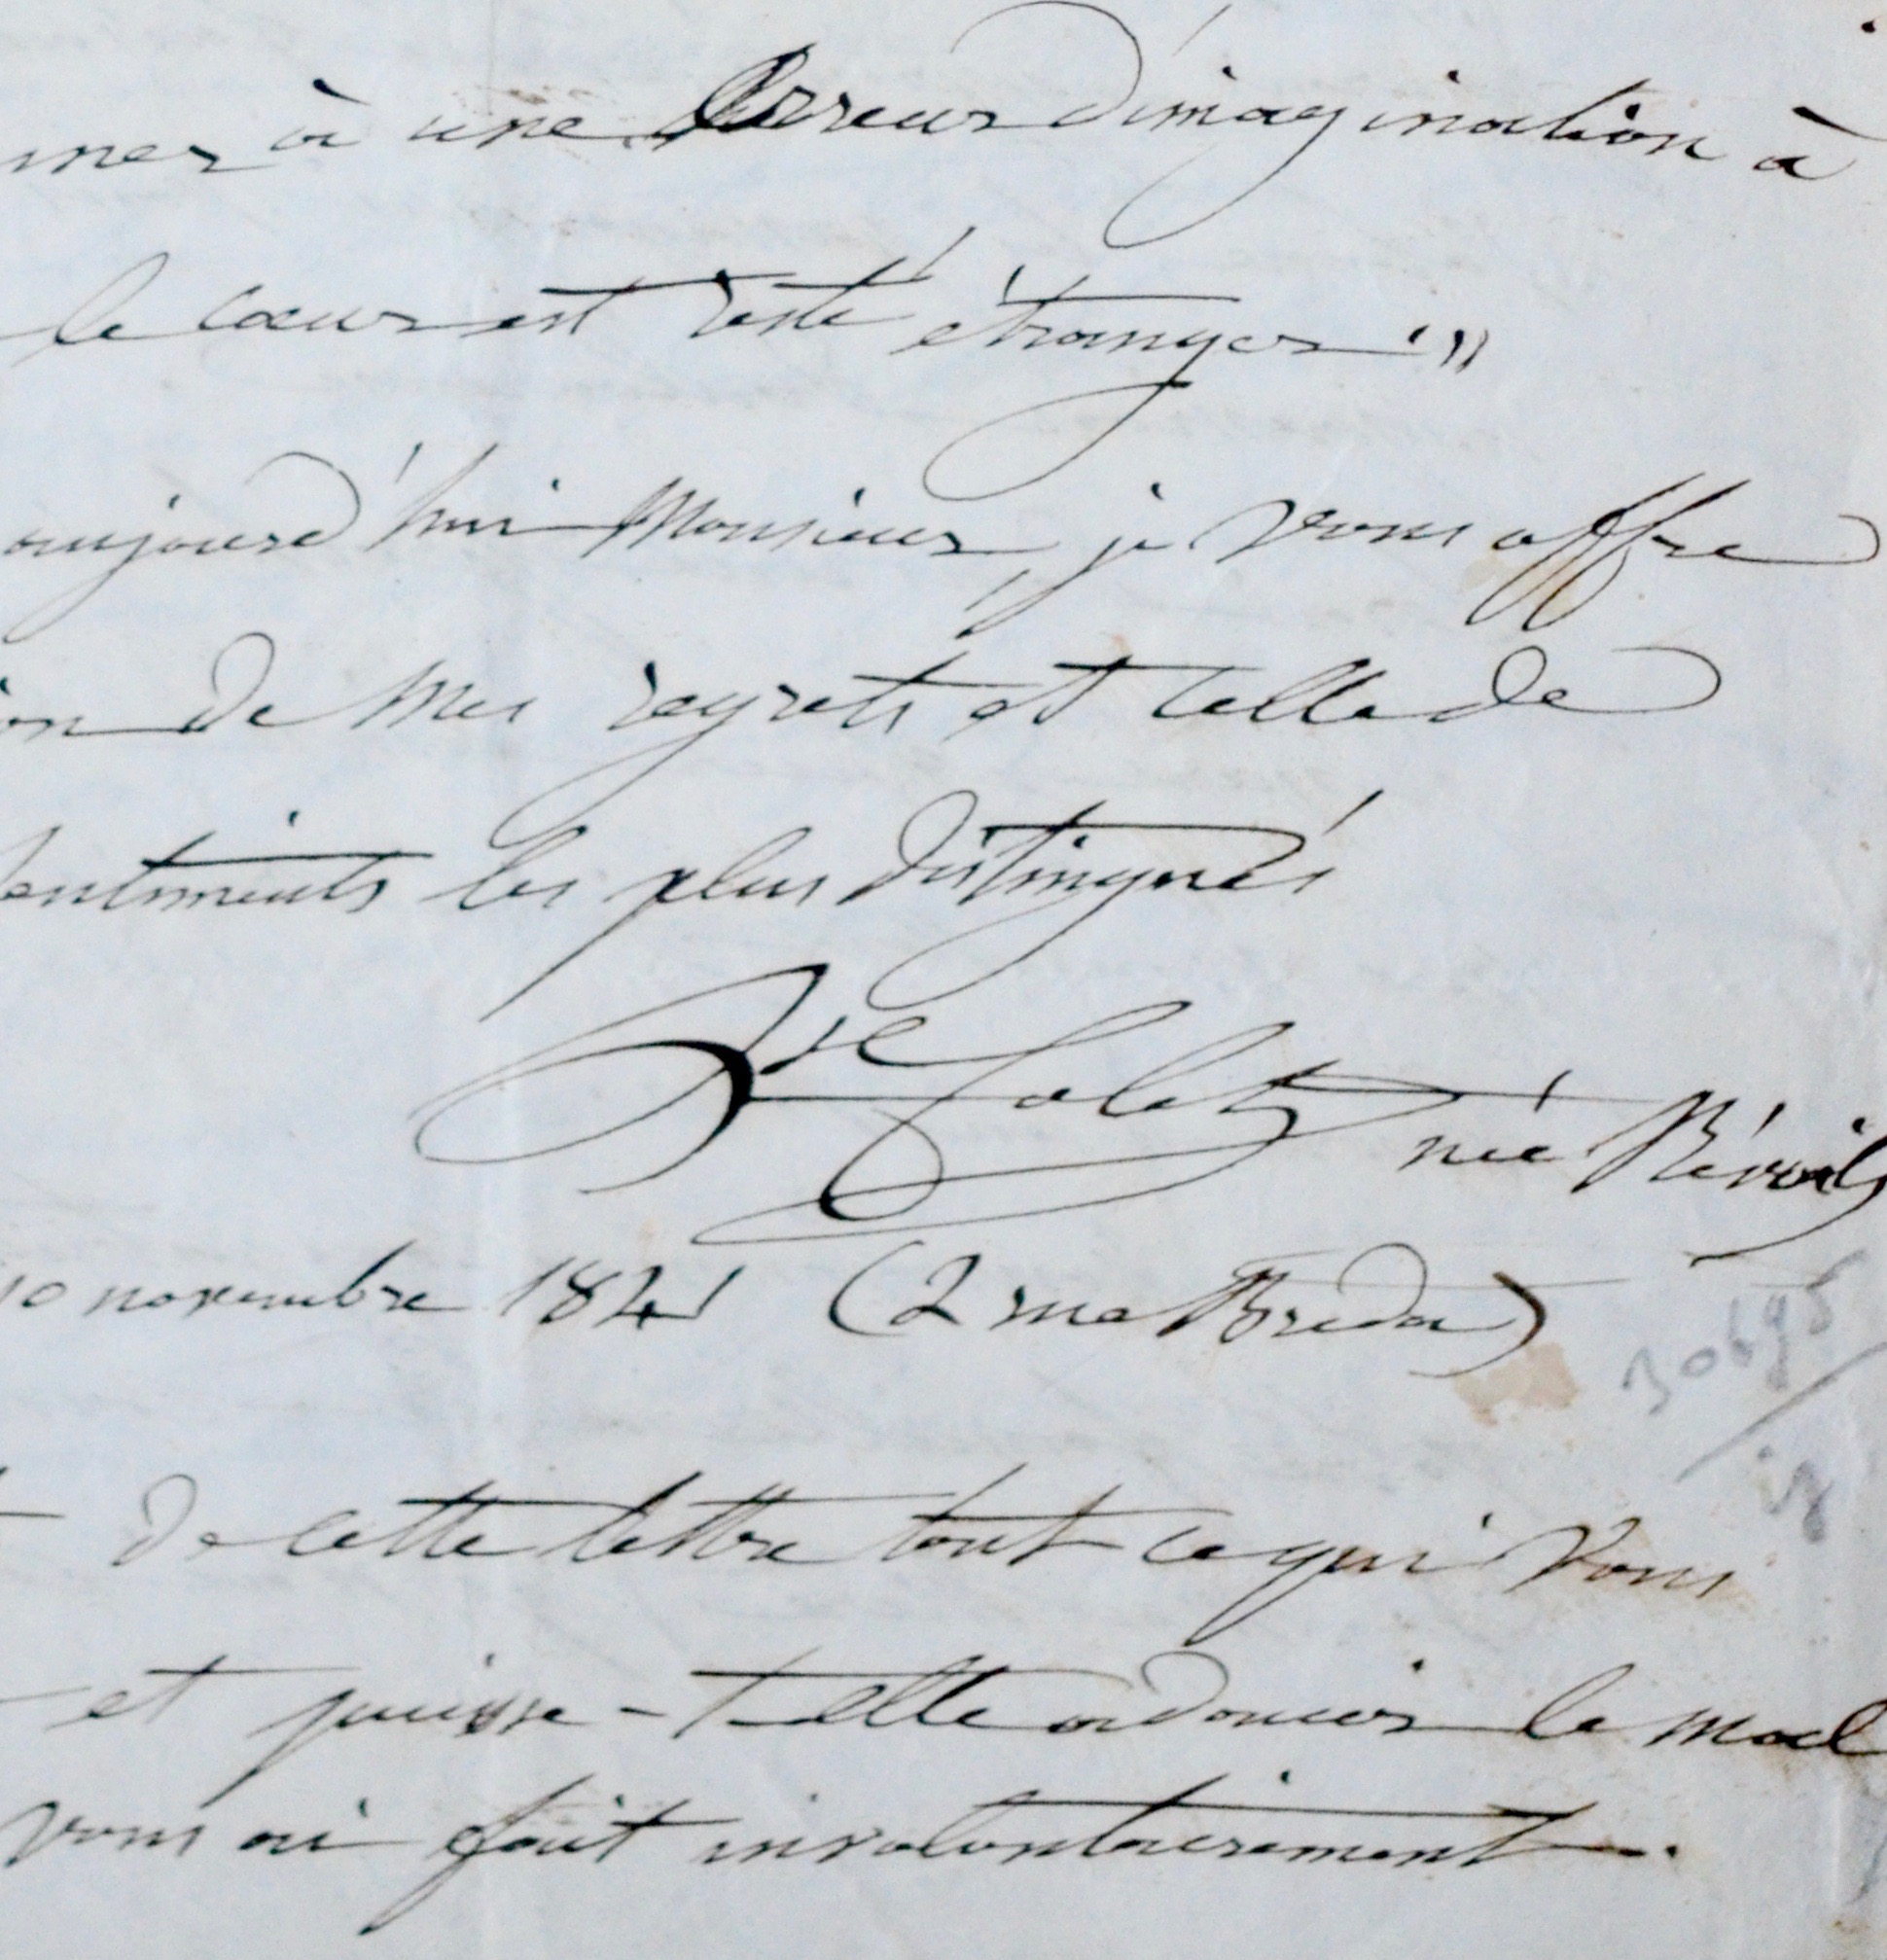 mer à une erreur d'imagination à
le cœur est resté étranger."
aujourd'hui Monsieur, je vous offre
on de mes regrets et celle de
sentiments les plus distingués
Colet née Révoil
10 novembre 1841 (2 rue Breda)
de cette lettre tout ce qui vous
et puisse-t-elle adoucir le mal
vous ai fait involontairement.